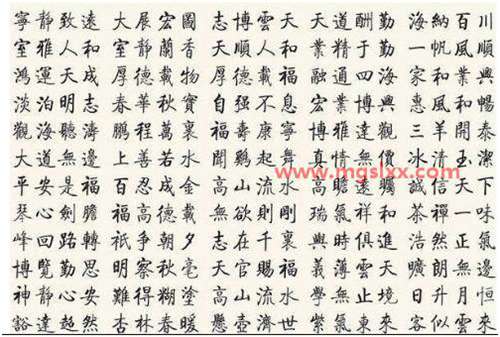 寧靜致遠 大展宏圖 志博雲天 天道酬勤 海納百川
室雅人和 室靜蘭香 順人和 業精于勤 一帆風順
鴻運天成 厚德載物 厚德載福 融通四海 家和業興
淡泊明志 春華秋實 自強不息 宏業博興 惠風和暢
觀海聽濤 鵬程萬裏 福壽康寧 博雅達觀 三羊開泰
大道無邊 上善若水 聞鷄起舞 真情無價 冰清玉潔
www.mqslxx.com
平安是福 百忍成金 高山流水 高瞻遠矚 誠信天下
琴心劍膽 福高德載 無欲則剛 瑞氣祥和 茶禪一味
峰回路轉 祇爭朝夕 志在千裏 與時俱進 浩然正氣
博覽勤思 明察秋毫 天官賜福 義薄雲天 曠朗無邊
神靜心安 難得糊塗 高山流水 學無止境 日升月恒
豁達超然 杏林春暖 懸壺濟世 紫氣東來 客似雲來